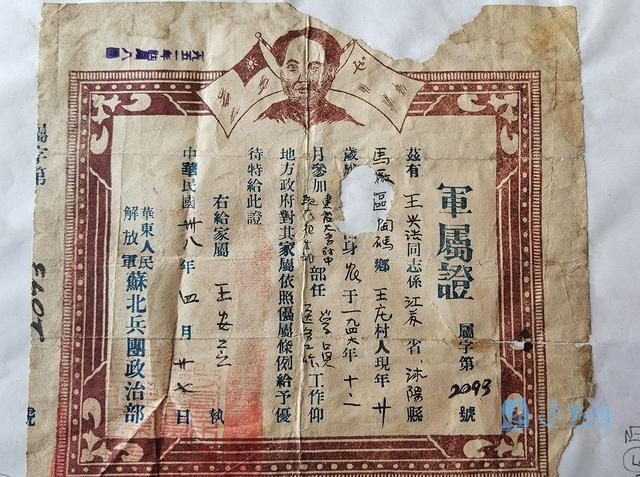 軍屬證
屬字第2093號
茲有王兴洪同志係江苏省沭陽縣
馬廠區陶碼鄉王庄村人現年廿
歲 身农于一九四六年十二
月參加 部任 工作仰
地方政府對其家屬依照優屬條例給予優
待特給此證
右給家屬王安 執
中華民國卅八年四月廿 日
華東人民
解放軍
蘇北兵團政治部
屬字第
2093
號